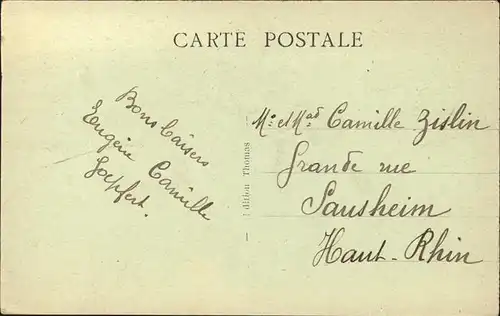 CARTE POSTALE
Bons baisers
Eugène Camille
Goepfert.
Edition Thomas
Mr et Mad Camille Zislin
Grande rue
Sausheim
Haut-Rhin